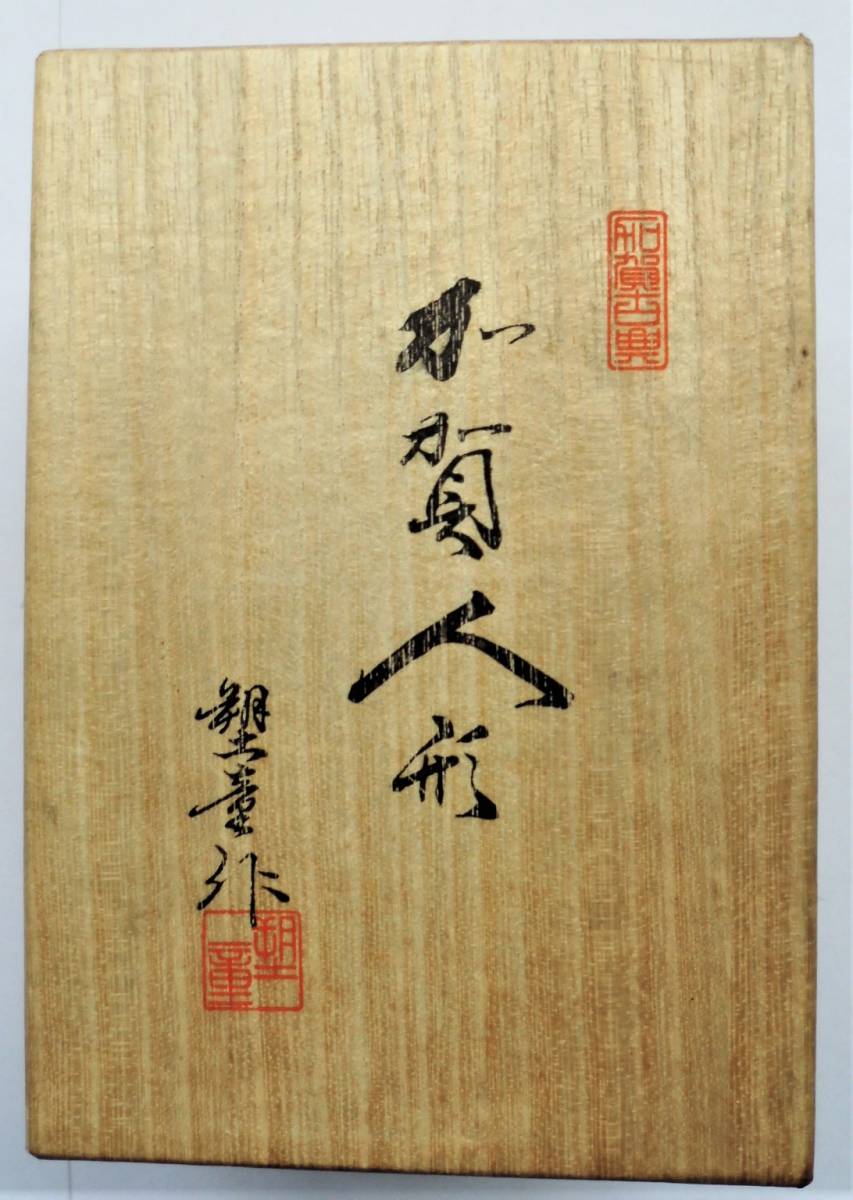 加賀古典
加賀人形
塑童作
塑童